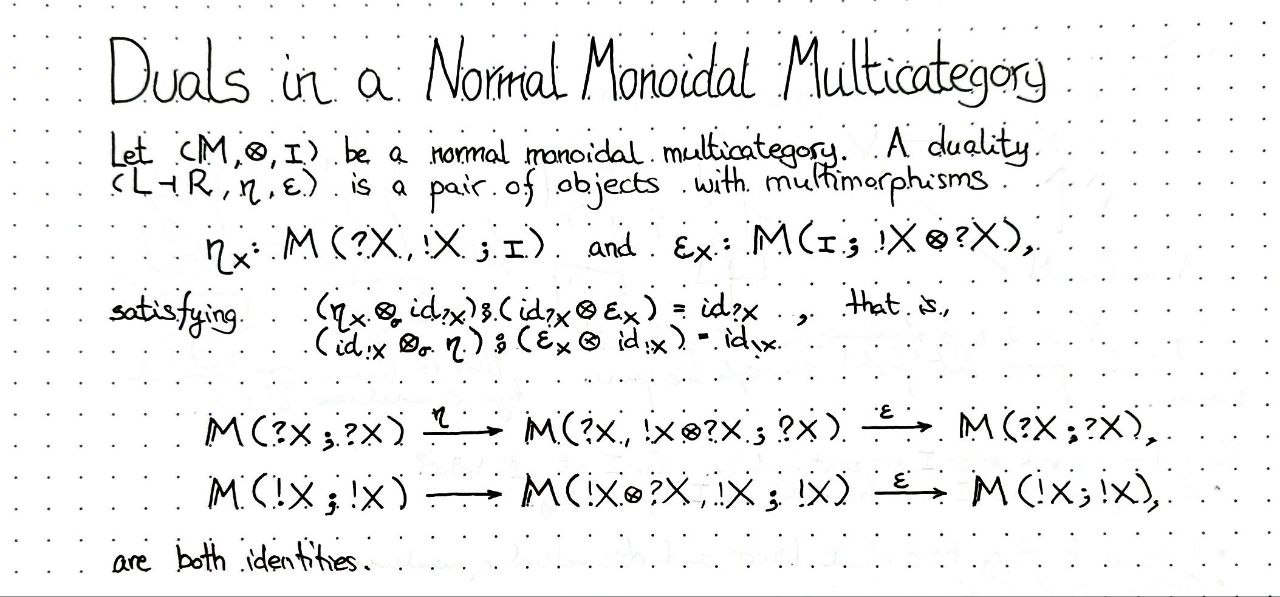 Duals in a Normal Monoidal Multicategory
Let (M, ⊗, I) be a normal monoidal multicategory. A duality
(L ⊣ R, η, ε) is a pair of objects with multimorphisms
η_X : M(?X, !X ; I) and ε_X : M(I ; !X ⊗ ?X),
satisfying (η_X ⊗_σ id_?X) ⨾ (id_?X ⊗ ε_X) = id_?X , that is,
(id_!X ⊗_σ η) ⨾ (ε_X ⊗ id_!X) = id_!X.
M(?X ; ?X) —η→ M(?X, !X ⊗ ?X ; ?X) —ε→ M(?X ; ?X),
M(!X ; !X) ⟶ M(!X ⊗ ?X, !X ; !X) —ε→ M(!X ; !X),
are both identities.